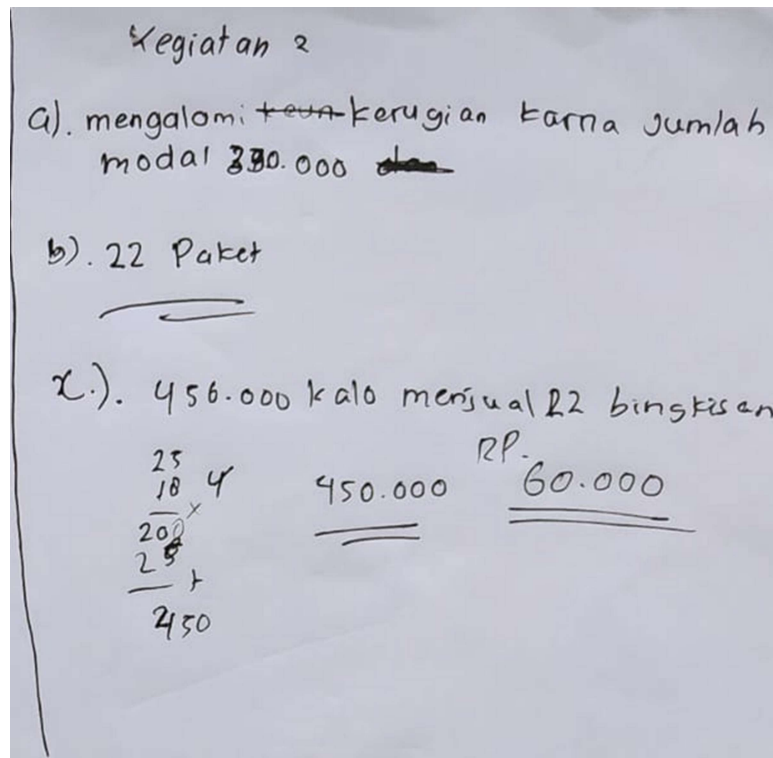 Kegiatan 2
a). mengalami kerugian karna Jumlah
modal 330.000
b). 22 Paket
x.). 456.000 kalo menjual 22 bingkisan
RP.
25
18 4 450.000 60.000
x
200
25
+
450